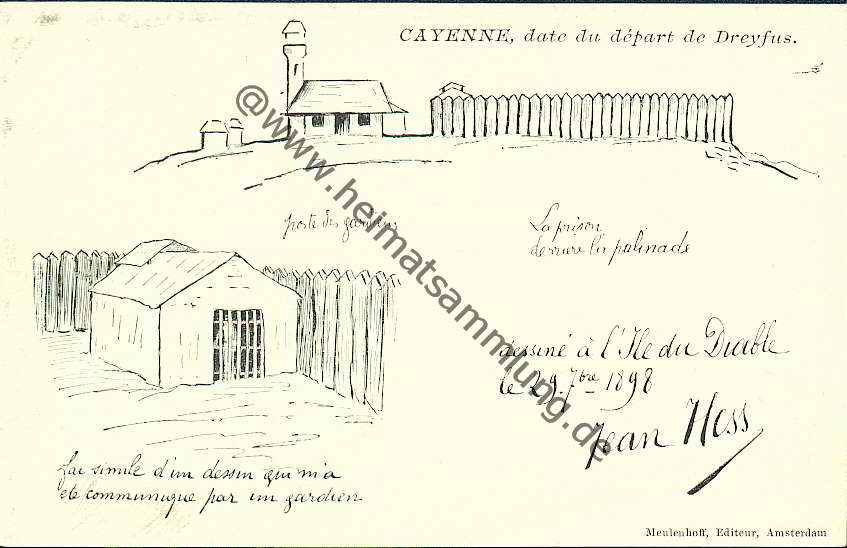 CAYENNE, date du départ de Dreyfus.
poste des gardiens
La prison
derriere la palissade
dessiné à l'Ile du Diable
le 29 7bre 1898
Jean Hess
Fac simile d'un dessin qui m'a
été communiqué par un gardien
Meulenhoff, Editeur, Amsterdam
@www.heimatsammlung.de